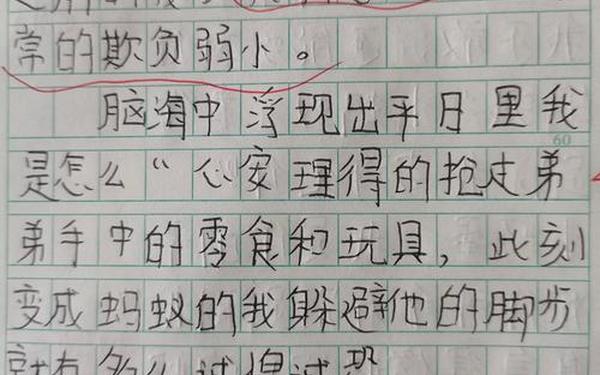 常的欺负弱小。
脑海中浮现出平日里我
60
是怎么“心安理得的抢走弟
弟手中的零食和玩具，此刻
变成蚂蚁的我躲避他的脚步
就有多么诚惶诚恐